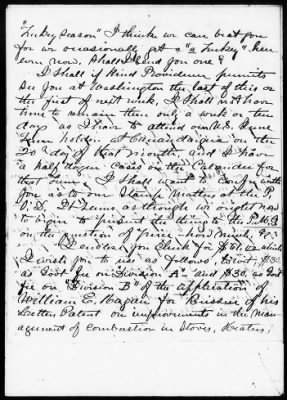 "Turkey season" I think we can beat you
for we occasionally get a "a Turkey" here
even now, Shall I send you one?
I shall if Kind Providence permits
see you at Washington the last of this or
the first of next week, I shall not have
time to remain then only a week or ten
days as I have to attend our U.S. June
Term holden at Canandaigua on the
20th day of that month and I have
half dozen cases on the Calendar for
that term. I shall want to confer with
you as to our Stamp matters at the P.
O. Dept. It seems as though we ought now
to begin to present the thing to the
on the question of price how much &c.
I enclose you Check for $60. which
I wish you to use as follows, to wit: $30.
as Govt fee on Division "A" and $30. as Govt
fee on "Division B" of the application of
William E. for Reissue of his
Letters Patent on improvements in the Man-
agement of Combustion in Stoves, Heaters,